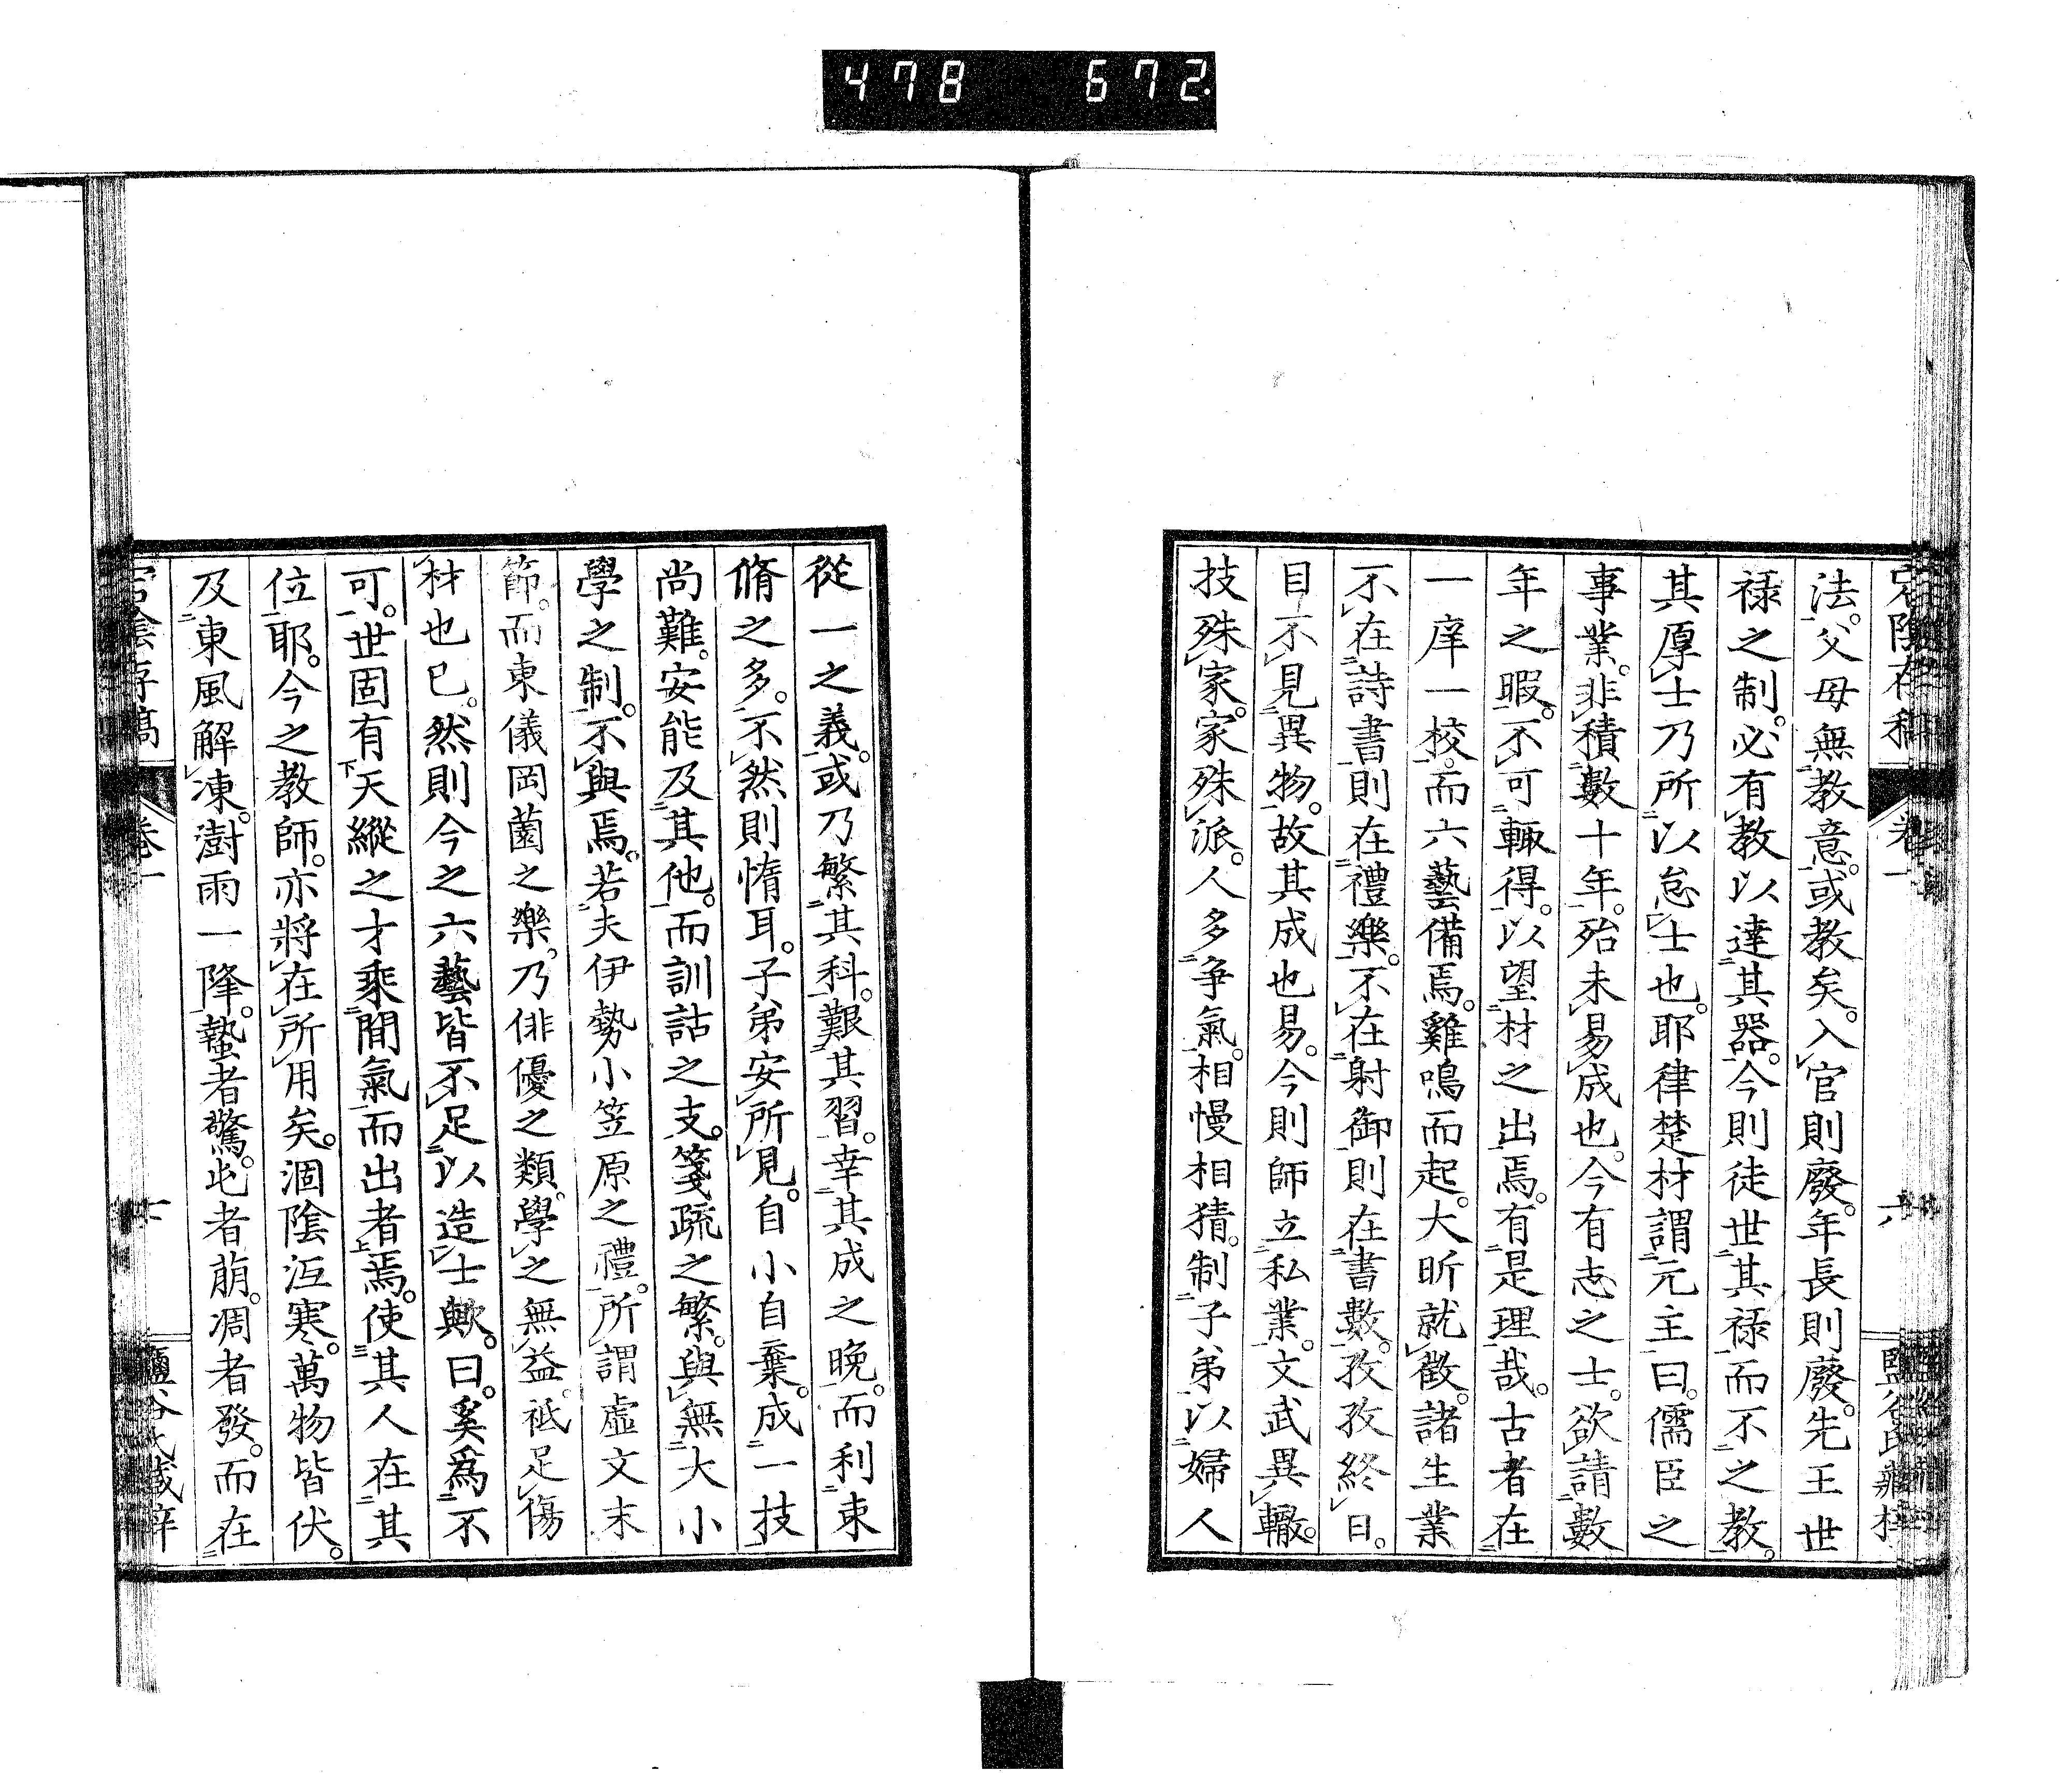 478 672
宕陰存稿 卷一 六 鹽谷氏藏梓
法。父母無教意。或教矣。入官則廢。年長則廢。先王世
祿之制。必有教以達其器。今則徒世其祿而不之教。
其厚士乃所以怠士也。耶律楚材謂元主曰。儒臣之
事業。非積數十年。殆未易成也。今有志之士。欲請數
年之暇。不可輒得。以望材之出焉。有是理哉。古者在
一庠一校。而六藝備焉。雞鳴而起。大昕就徵。諸生業
不在詩書則在禮樂。不在射御則在書數。孜孜終日。
目不見異物。故其成也易。今則師立私業。文武異轍。
技殊家。家殊派。人多爭氣。相慢相猜。制子弟以婦人
從一之義。或乃繁其科。艱其習。幸其成之晚。而利束
脩之多。不然則惰耳。子弟安所見。自小自棄。成一技
尚難。安能及其他。而訓詁之支。箋疏之繁。與無大小
學之制。不與焉。若夫伊勢小笠原之禮。所謂虛文末
節。而東儀岡薗之樂。乃俳優之類。學之無益。祇足傷
材也已。然則今之六藝皆不足以造士歟。曰。奚爲不
可。世固有天縱之才乘間氣而出者焉。使其人在其
位耶。今之教師。亦將在所用矣。涸陰沍寒。萬物皆伏。
及東風解凍。澍雨一降。蟄者驚。屯者萠。凋者發。而在
宕陰存稿 卷一 七 鹽谷氏藏梓